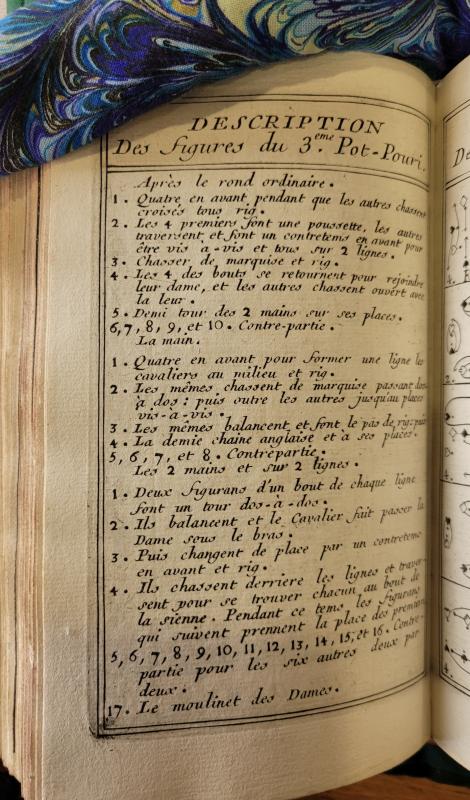 DESCRIPTION
Des figures du 3.eme Pot-Pouri.
Après le rond ordinaire.
1. Quatre en avant, pendant que les autres chassent
croisés tous rig.
2. Les 4 premiers font une poussette, les autres
traversent et font un contretems en avant pour
être vis a-vis et tous sur 2 lignes.
3. Chasser de marquise et rig.
4. Les 4 des bouts se retournent pour rejoindre
leur dame, et les autres chassent ouvert avec
la leur.
5. Demi tour des 2 mains sur ses places.
6, 7, 8, 9, et 10. Contre-partie.
La main.
1. Quatre en avant pour former une ligne les
cavaliers au milieu et rig.
2. Les mêmes chassent de marquise passant dos
à dos: puis outre les autres jusqu'au places
vis-à-vis.
3. Les mêmes balancent et font le pas de rig: puis
4. La demie chaine anglaise et a ses places.
5, 6, 7, et 8. Contrepartie.
Les 2 mains et sur 2 lignes.
1. Deux figurans d'un bout de chaque ligne
font un tour dos-à-dos.
2. Ils balancent et le Cavalier fait passer la
Dame sous le bras.
3. Puis changent de place par un contretems
en avant et rig.
4. Ils chassent derriere les lignes et traver-
sent pour se trouver chacun au bout de
la sienne. Pendant ce tems les figurans
qui suivent prennent la place des premiers
5, 6, 7, 8, 9, 10, 11, 12, 13, 14, 15, et 16. Contre-
partie pour les six autres deux par
deux.
17. Le moulinet des Dames.